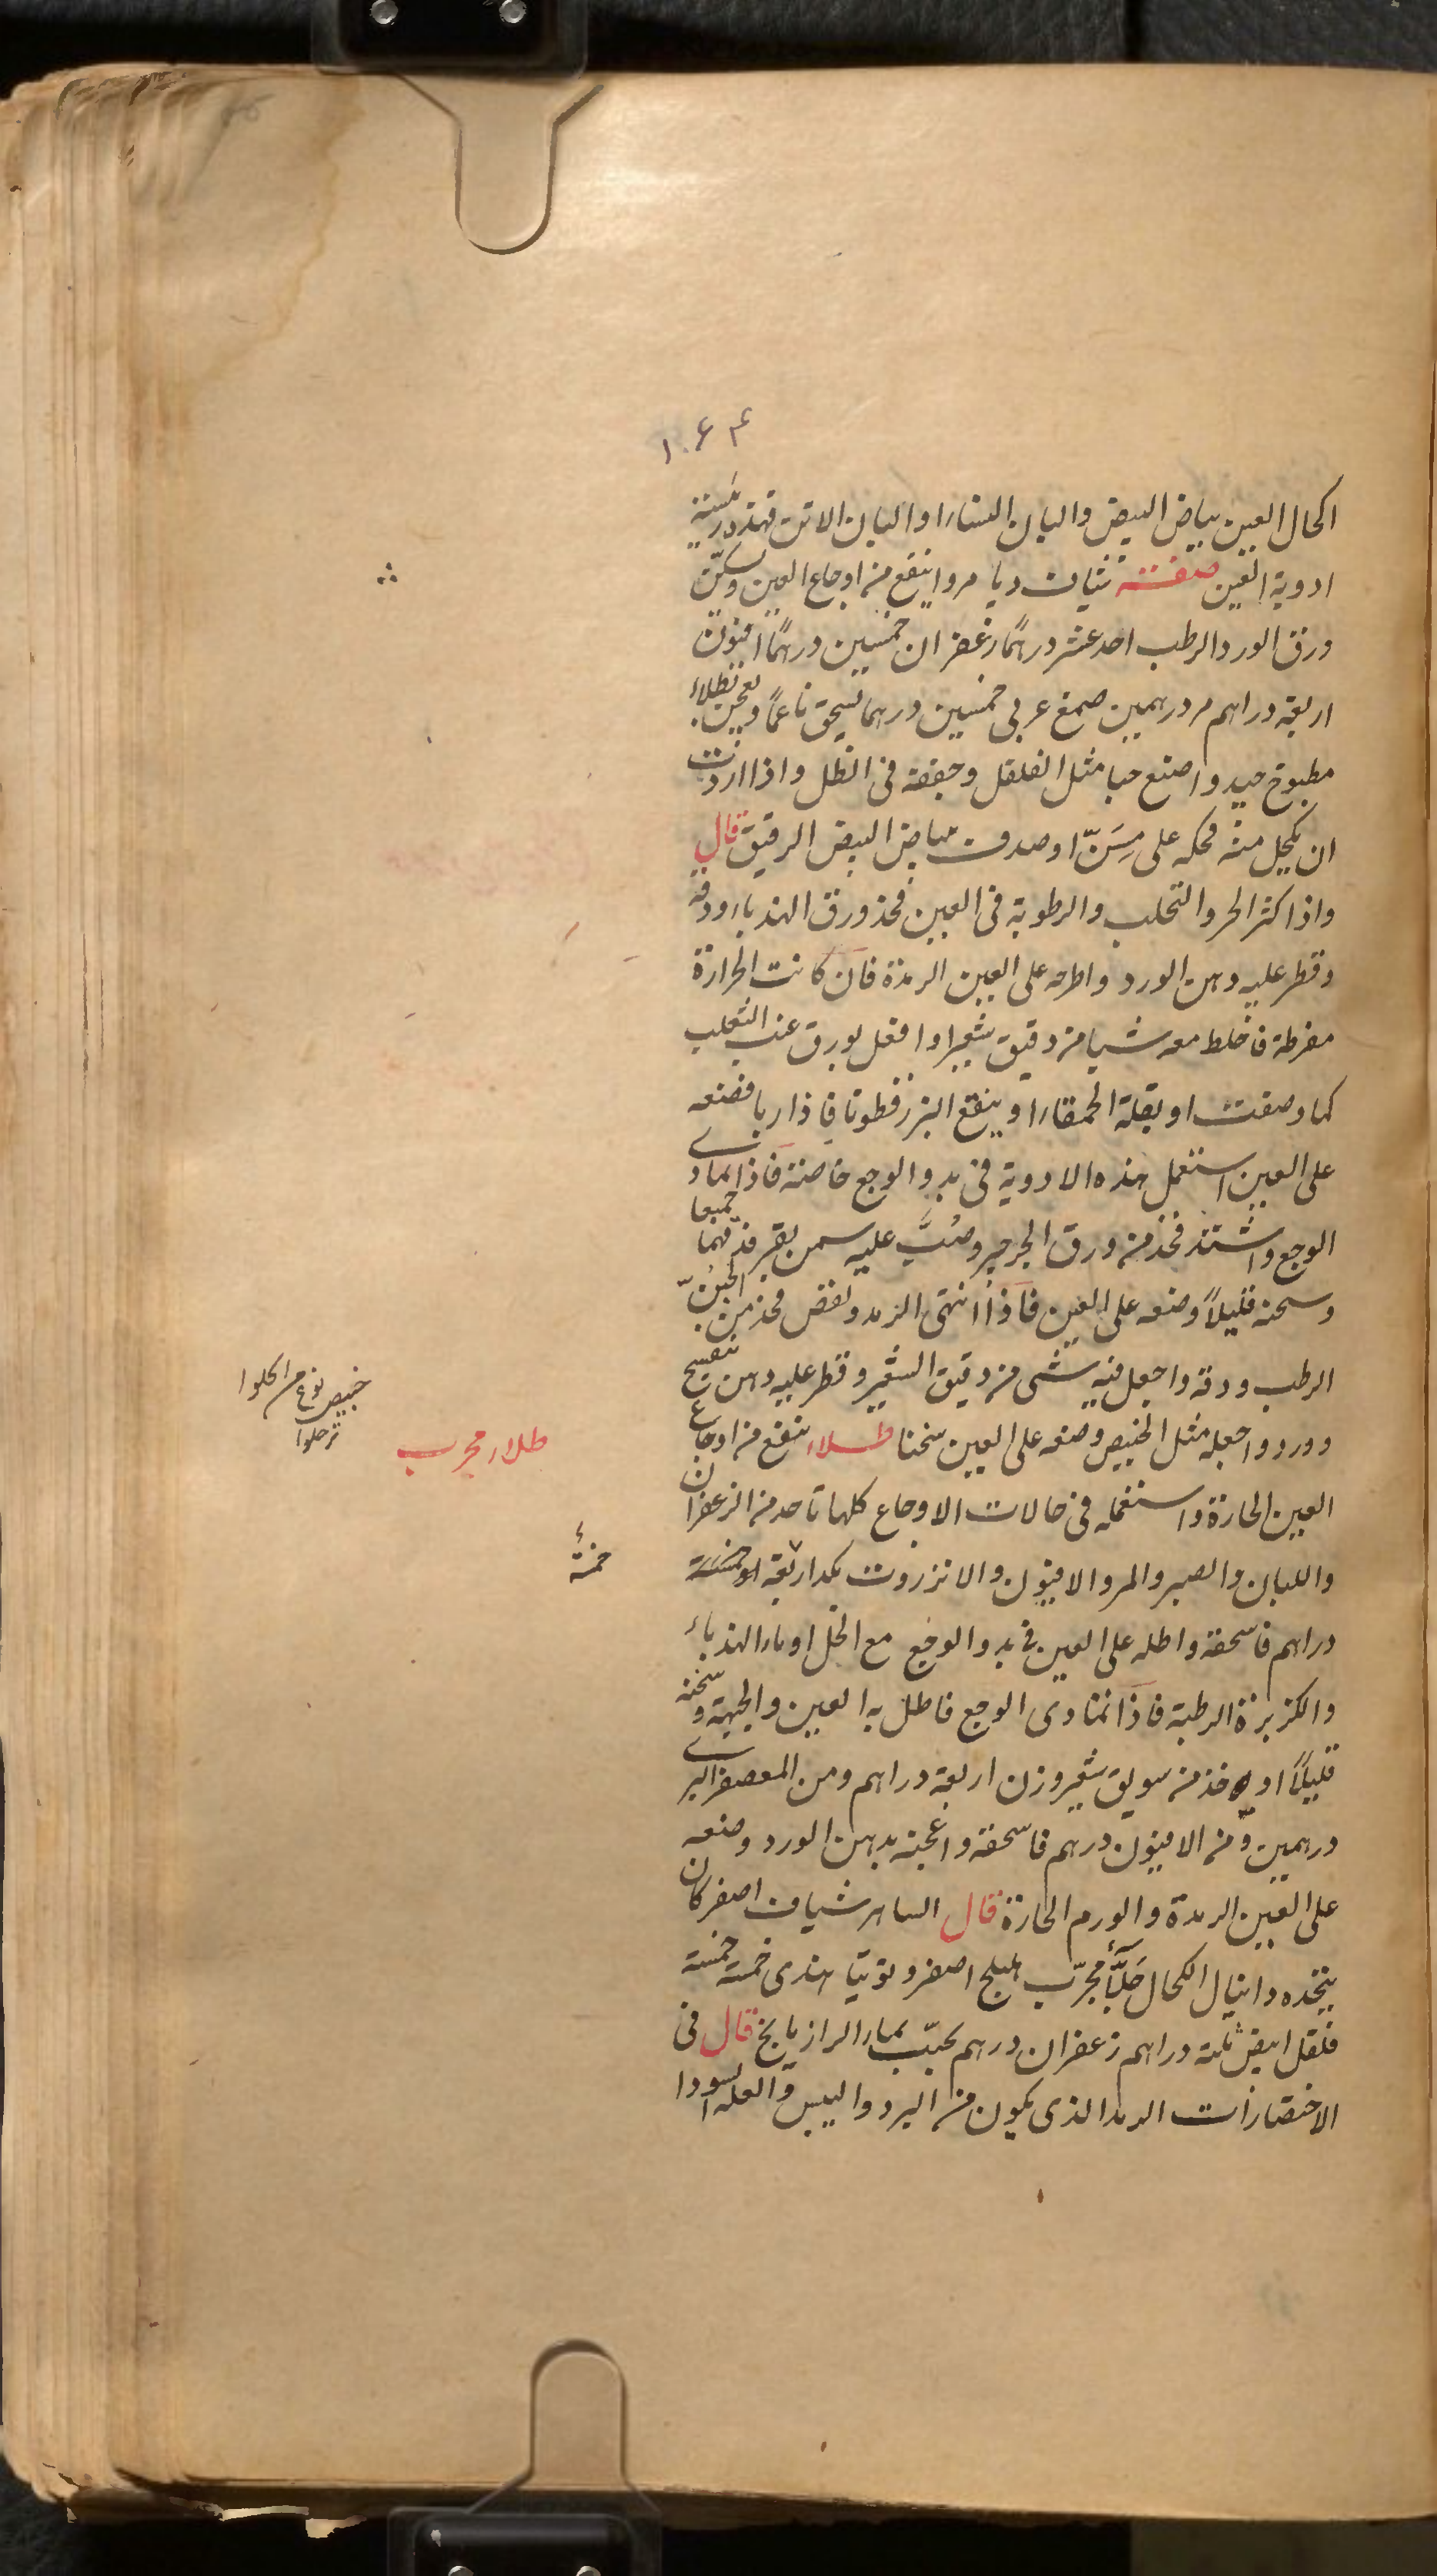 ١٠٦٤
اكحال العين ببياض البيض والبان النسا او البان الاتن فهذه رئيسة
ادوية العين صفته شياف ديا مروا ينفع من اوجاع العين ويسكن
ورق الورد الرطب احد عشر درهمًا زعفران خمسين درهمًا افيون
اربعة دراهم مر درهمين صمغ عربي خمسين درهما يسحق ناعمًا ويعجن بطلاء
مطبوخ جيد واصنع حبا مثل الفلفل وجففه في الظل واذا اردت
ان يكحل منه فحكه على مِسَنّ او صدف ببياض البيض الرقيق قال
واذا كثر الحر والتحلب والرطوبة في العين فخذ ورق الهندبا ودقه
وقطر عليه دهن الورد واطرحه على العين الرمدة فان كانت الحرارة
مفرطة فاخلط معه شيا من دقيق شعير او افعل بورق عنب الثعلب
كما وصفت او بقلة الحمقا او ينقع البزرقطونا فاذا ربا فضعه
على العين استعمل هذه الادوية في بدو الوجع خاصة فاذا تمادى
الوجع واشتد فخذ من ورق الجرجير وصُبَّ عليه سمن بقر فدقهما جميعا
وسخنه قليلاً وضعه على العين فاذا انتهى الرمد ونقص فخذ من الجبُنّ
الرطب ودقه واجعل فيه شى من دقيق الشعير وقطر عليه دهن بنفسج
وورد واجعله مثل الخبيص وضعه على العين سخنا طلاء ينفع من اوجاع
العين الحارة واستعمله في حالات الاوجاع كلها تاخد من الزعفران
واللبان والصبر والمر والافيون والانزروت بكد اربعة او خمسة
دراهم فاسحقه واطله على العين في بدو الوجع مع الخل او ماء الهندباء
والكزبرة الرطبة فاذا تمادى الوجع فاطل به العين والجبهة وسخنه
قليلاً او خذ من سويق شعير وزن اربعة دراهم ومن المعصفر البري
درهمين ومن الافيون درهم فاسحقه واعجنه بدهن الورد وضعه
على العين الرمدة والورم الحارة قال الساهر شياف اصفر كان
يتخذه دانيال الكحال مجرّب هليلج اصفر وتوتيا هندى خمسة خمسة
فلفل ابيض ثلثة دراهم زعفران درهم يحبّب بماء الرازيانج قال في
الاختصارات الرمد الذى يكون من البرد واليبس والعلة السودا
خبيص نوع من الحلوا
تر حلوا
طلاء مجرب
خمسة